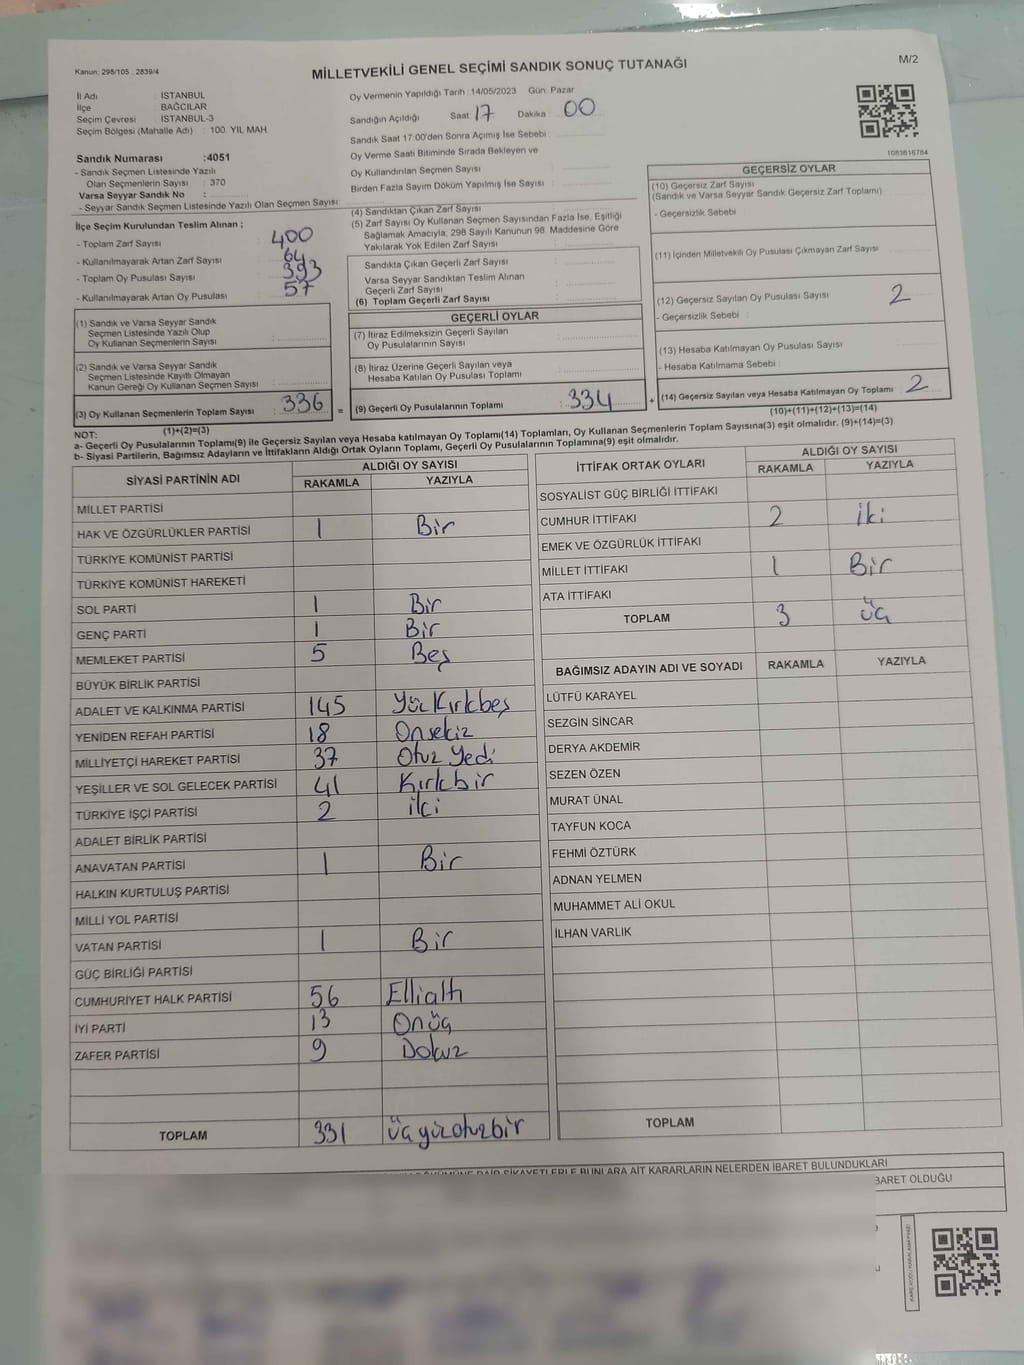 Kanun: 298/105 , 2839/4
MİLLETVEKİLİ GENEL SEÇİMİ SANDIK SONUÇ TUTANAĞI
M/2
İl Adı : İSTANBUL
İlçe : BAĞCILAR
Seçim Çevresi : İSTANBUL-3
Seçim Bölgesi (Mahalle Adı) : 100. YIL MAH
Sandık Numarası :4051
- Sandık Seçmen Listesinde Yazılı
Olan Seçmenlerin Sayısı : 370
Varsa Seyyar Sandık No :
- Seyyar Sandık Seçmen Listesinde Yazılı Olan Seçmen Sayısı:
İlçe Seçim Kurulundan Teslim Alınan ;
- Toplam Zarf Sayısı : 400
- Kullanılmayarak Artan Zarf Sayısı : 64
- Toplam Oy Pusulası Sayısı : 393
- Kullanılmayarak Artan Oy Pusulası : 57
(1) Sandık ve Varsa Seyyar Sandık
Seçmen Listesinde Yazılı Olup
Oy Kullanan Seçmenlerin Sayısı :
(2) Sandık ve Varsa Seyyar Sandık
Seçmen Listesinde Kayıtlı Olmayan
Kanun Gereği Oy Kullanan Seçmen Sayısı :
(3) Oy Kullanan Seçmenlerin Toplam Sayısı : 336
(1)+(2)=(3)
Oy Vermenin Yapıldığı Tarih :14/05/2023 Gün: Pazar
Sandığın Açıldığı Saat: 17 Dakika : 00
Sandık Saat 17:00'den Sonra Açımış İse Sebebi :
Oy Verme Saati Bitiminde Sırada Bekleyen ve
Oy Kullandırılan Seçmen Sayısı :
Birden Fazla Sayım Döküm Yapılmış İse Sayısı :
(4) Sandıktan Çıkan Zarf Sayısı :
(5) Zarf Sayısı Oy Kullanan Seçmen Sayısından Fazla İse, Eşitliği
Sağlamak Amacıyla, 298 Sayılı Kanunun 98. Maddesine Göre
Yakılarak Yok Edilen Zarf Sayısı :
Sandıkta Çıkan Geçerli Zarf Sayısı :
Varsa Seyyar Sandıktan Teslim Alınan
Geçerli Zarf Sayısı :
(6) Toplam Geçerli Zarf Sayısı :
GEÇERLİ OYLAR
(7) İtiraz Edilmeksizin Geçerli Sayılan
Oy Pusulalarının Sayısı :
(8) İtiraz Üzerine Geçerli Sayılan veya
Hesaba Katılan Oy Pusulası Toplamı :
= (9) Geçerli Oy Pusulalarının Toplamı : 334
1083616784
GEÇERSİZ OYLAR
(10) Geçersiz Zarf Sayısı
(Sandık ve Varsa Seyyar Sandık Geçersiz Zarf Toplamı) :
- Geçersizlik Sebebi :
(11) İçinden Milletvekili Oy Pusulası Çıkmayan Zarf Sayısı :
(12) Geçersiz Sayılan Oy Pusulası Sayısı : 2
- Geçersizlik Sebebi :
(13) Hesaba Katılmayan Oy Pusulası Sayısı :
- Hesaba Katılmama Sebebi :
+ (14) Geçersiz Sayılan veya Hesaba Katılmayan Oy Toplamı : 2
(10)+(11)+(12)+(13)=(14)
NOT:
a- Geçerli Oy Pusulalarının Toplamı(9) ile Geçersiz Sayılan veya Hesaba katılmayan Oy Toplamı(14) Toplamları, Oy Kullanan Seçmenlerin Toplam Sayısına(3) eşit olmalıdır. (9)+(14)=(3)
b- Siyasi Partilerin, Bağımsız Adayların ve İttifakların Aldığı Ortak Oyların Toplamı, Geçerli Oy Pusulalarının Toplamına(9) eşit olmalıdır.
SİYASİ PARTİNİN ADI
ALDIĞI OY SAYISI
RAKAMLA YAZIYLA
MİLLET PARTİSİ
HAK VE ÖZGÜRLÜKLER PARTİSİ 1 Bir
TÜRKİYE KOMÜNİST PARTİSİ
TÜRKİYE KOMÜNİST HAREKETİ
SOL PARTİ 1 Bir
GENÇ PARTİ 1 Bir
MEMLEKET PARTİSİ 5 Beş
BÜYÜK BİRLİK PARTİSİ
ADALET VE KALKINMA PARTİSİ 145 Yüz Kırkbeş
YENİDEN REFAH PARTİSİ 18 Onsekiz
MİLLİYETÇİ HAREKET PARTİSİ 37 Otuz Yedi
YEŞİLLER VE SOL GELECEK PARTİSİ 41 Kırkbir
TÜRKİYE İŞÇİ PARTİSİ 2 iki
ADALET BİRLİK PARTİSİ
ANAVATAN PARTİSİ 1 Bir
HALKIN KURTULUŞ PARTİSİ
MİLLİ YOL PARTİSİ
VATAN PARTİSİ 1 Bir
GÜÇ BİRLİĞİ PARTİSİ
CUMHURİYET HALK PARTİSİ 56 Ellialtı
İYİ PARTİ 13 Onüç
ZAFER PARTİSİ 9 Dokuz
TOPLAM 331 üç yüz otuz bir
İTTİFAK ORTAK OYLARI
ALDIĞI OY SAYISI
RAKAMLA YAZIYLA
SOSYALİST GÜÇ BİRLİĞİ İTTİFAKI
CUMHUR İTTİFAKI 2 iki
EMEK VE ÖZGÜRLÜK İTTİFAKI
MİLLET İTTİFAKI 1 Bir
ATA İTTİFAKI
TOPLAM 3 üç
BAĞIMSIZ ADAYIN ADI VE SOYADI RAKAMLA YAZIYLA
LÜTFÜ KARAYEL
SEZGİN SİNCAR
DERYA AKDEMİR
SEZEN ÖZEN
MURAT ÜNAL
TAYFUN KOCA
FEHMİ ÖZTÜRK
ADNAN YELMEN
MUHAMMET ALİ OKUL
İLHAN VARLIK
TOPLAM
DAİR ŞİKAYETLERLE BUNLARA AİT KARARLARIN NELERDEN İBARET BULUNDUKLARI
BARET OLDUĞU